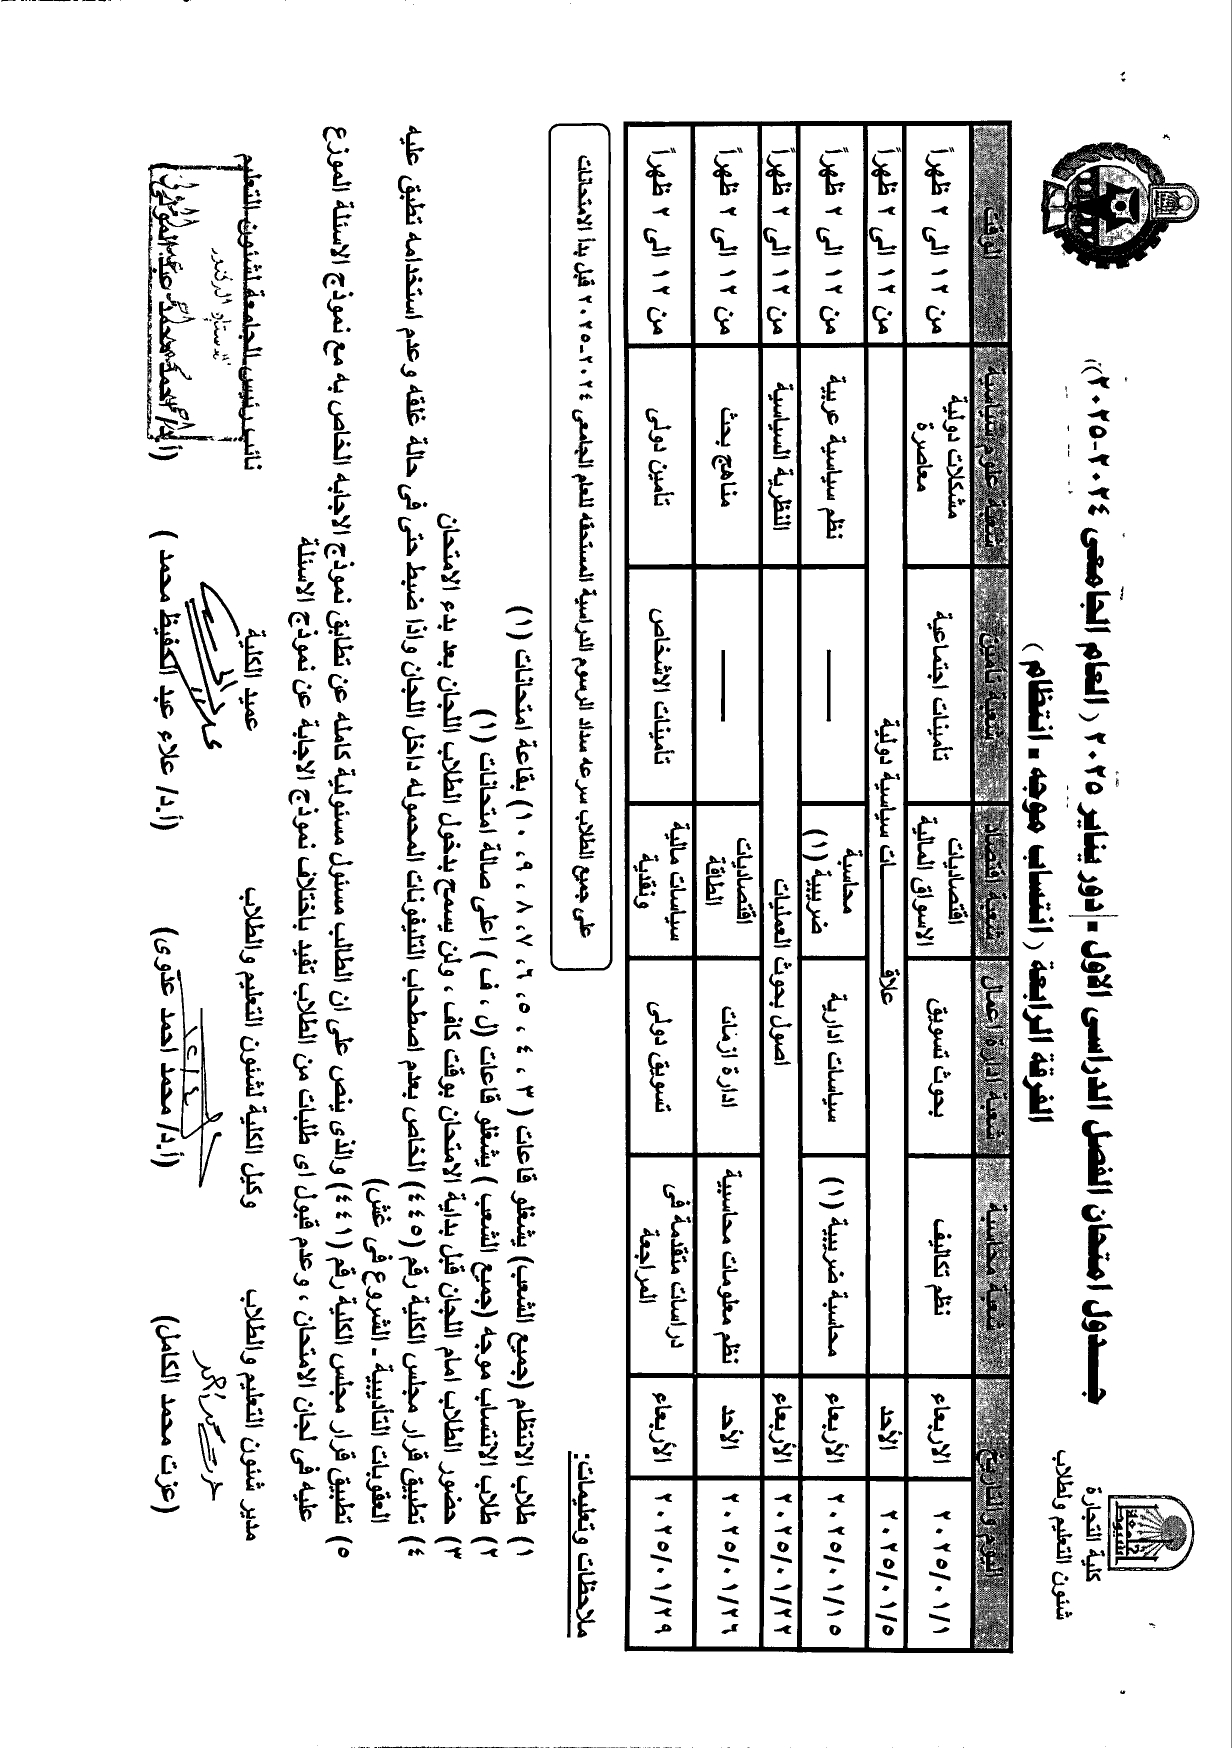 كلية التجارة
شئون التعليم والطلاب
جــدول امتحان الفصل الدراسى الاول - دور يناير ٢٠٢٥ ( العام الجامعى ٢٠٢٤-٢٠٢٥))
الفرقة الرابعة ( انتساب موجه - انتظام )
اليوم والتاريخ شعبة محاسبة شعبة ادارة اعمال شعبة اقتصاد شعبة تأمين شعبة علوم سياسية الوقت
الاربعاء ٢٠٢٥/٠١/١ نظم تكاليف بحوث تسويق اقتصاديات الاسواق المالية تأمينات اجتماعية مشكلات دولية معاصرة من ١٢ الى ٢ ظهراً
الأحد ٢٠٢٥/٠١/٥ علاقـــــــات سياسية دولية من ١٢ الى ٢ ظهراً
الأربعاء ٢٠٢٥/٠١/١٥ محاسبة ضريبية (١) سياسات ادارية محاسبة ضريبية (١) ـــــــ نظم سياسية عربية من ١٢ الى ٢ ظهراً
الأربعاء ٢٠٢٥/٠١/٢٢ اصول بحوث العمليات النظرية السياسية من ١٢ الى ٢ ظهراً
الأحد ٢٠٢٥/٠١/٢٦ نظم معلومات محاسبية ادارة ازمات اقتصاديات الطاقة ـــــــ مناهج بحث من ١٢ الى ٢ ظهراً
الأربعاء ٢٠٢٥/٠١/٢٩ دراسات متقدمة فى المراجعة تسويق دولى سياسات مالية ونقدية تأمينات الاشخاص تأمين دولى من ١٢ الى ٢ ظهراً
ملاحظات وتعليمات:
على جميع الطلاب سرعه سداد الرسوم الدراسية المستحقه للعام الجامعى ٢٠٢٤-٢٠٢٥ قبل بدأ الامتحانات
١) طلاب الانتظام (جميع الشعب) يشغلو قاعات ( ٣ ، ٤ ، ٥، ٦، ٧، ٨، ٩، ١٠) بقاعة امتحانات (١)
٢) طلاب الانتساب موجه (جميع الشعب ) يشغلو قاعات (ل ، ف ) اعلى صالة امتحانات (١)
٣) حضور الطلاب امام اللجان قبل بداية الامتحان بوقت كاف ، ولن يسمح بدخول الطلاب اللجان بعد بدء الامتحان
٤) تطبيق قرار مجلس الكلية رقم (٤٤٥) الخاص بعدم اصطحاب التليفونات المحموله داخل اللجان واذا ضبط حتى فى حالة غلقه وعدم استخدامه تطبق عليه
العقوبات التأديبية - الشروع فى غش)
٥) تطبيق قرار مجلس الكلية رقم (٤٤١) والذى ينص على ان الطالب مسئول مسئولية كامله عن تطابق نموذج الاجابه الخاص به مع نموذج الاسئلة الموزع
عليه فى لجان الامتحان ، وعدم قبول اى طلبات من الطلاب تفيد باختلاف نموذج الاجابة عن نموذج الاسئلة
مدير شئون التعليم والطلاب وكيل الكلية لشئون التعليم والطلاب عميد الكلية نائب رئيس الجامعة لشئون التعليم
(عزت محمد الكامل) (أ.د/ محمد احمد عدوى) (أ.د/ علاء عبد الحفيظ محمد ) (أ.د/ احمد محمد عبد المولى)